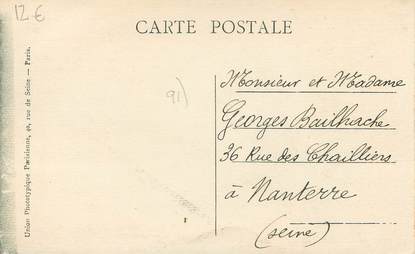 12 €
CARTE POSTALE
91)
Monsieur et Madame
Georges Bailhache
36 Rue des Chailliers
à Nanterre
(Seine)
Union Phototypique Parisienne, 49, rue de Seine — Paris.